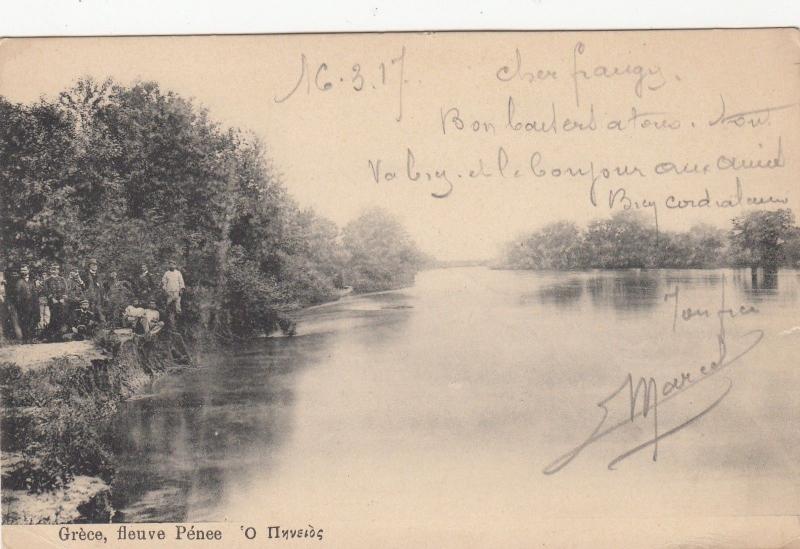 16.3.17. cher frangy.
Bon baisers a tous. tout
Va bien. et le bonjour aux amis
Bien cordialement
Ton frère
Marcel
Grèce, fleuve Pénee Ὁ Πηνειὸς